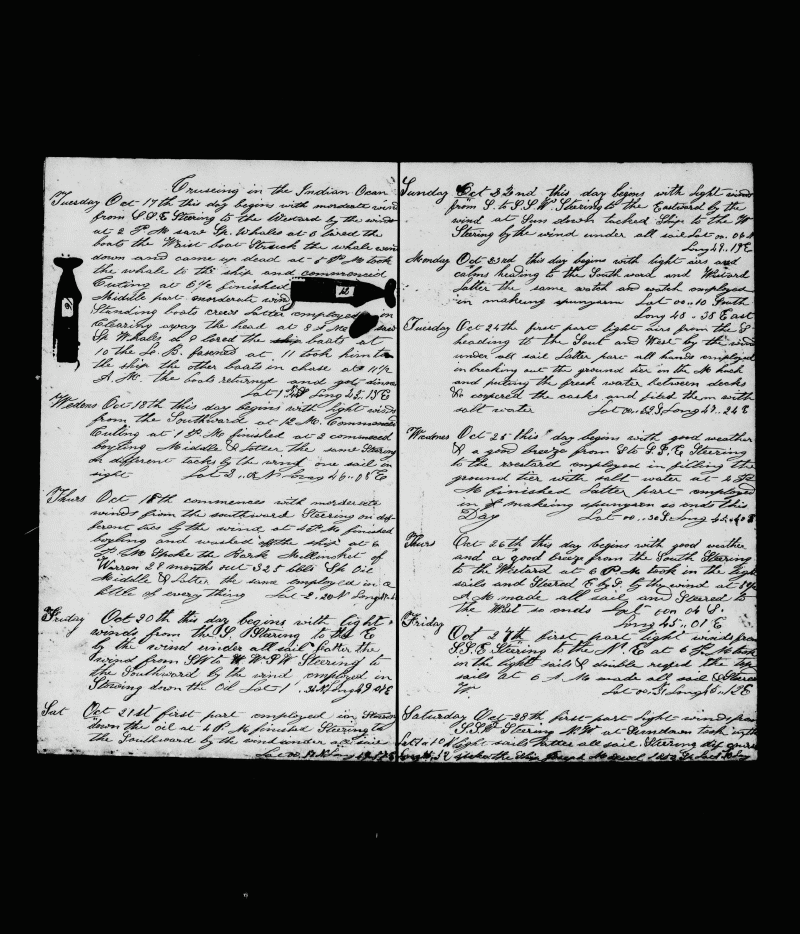 Cruseing in the Indian Ocan
Tuesday Oct 17th this day begins with morderte wind
from S.S.E Stering to the Westard by the wind
at 2 P.M saw Sp. Whales at 3 lored the
boats the Waist boat Struck the whale went
down and came up dead at 5 P.M took
the whale to the ship and commenced
Cuting at 6 1/2 finished
Middle part morderte wind
Standing boats crews Latter employed in
Clearing away the head at 8 A.M saw
Sp Whales at 9 lored the boats at
10 the L.B. fasened at 11 took him to
the ship the other boats in chase at 11 1/2
A.M. the boats returned and got dinner
Lat 1 Long 45..19 E
Wedens Oct 18th this day begins with light winds
from the Southward at 12 M. Commenced
Cuting at 1 P.M finished at 2 commenced
boyling Middle & Latter the same Stearing
on different tacks by the wind one sail in
sight Lat 2.. N Long 46..05 E
Thurs Oct 18th commences with morderate
winds from the southward Steering on dif
ferent tacs by the wind at 4 P.M finished
boyling and washed off the ship at 6
P.M Spoke the Bark Mellinoket of
Warren 29 months out 325 bbls Sp Oil
Middle & Latter the same employed in a
little of every thing Lat 2..20 N Long
Friday Oct 20th this day begins with light
winds from the S. Stering to the E
by the wind under all sail Latter the
wind from SW to W.S.W Steering to
the Southward by the wind employed in
Stowing down the Oil Lat 1 N Long 49
Sat Oct 21st first part employed in Stowing
down the oil at 4 P.M finished Steering to
the Southward by the wind under all sail
Lat Long
12
Sunday Oct 22nd this day begins with light winds
from S. to S.S.W. Steering to the Eastward by the
wind at Sun down tacked Ship to the W
Stering by the wind under all sail Lat 00..06
Long 49..19 E
Monday Oct 23rd this day begins with light airs and
calms heading to the Southward and Westard
Latter the same watch and watch employed
in makeing spunyarn Lat 00..10 South
Long 48..38 East
Tuesday Oct 24th first part light airs from the S
heading to the Sout and West by the wind
under all sail Latter part all hands employed
in breaking out the ground tier in the M hach
and puting the fresh water between decks
& coopered the casks and filed them with
salt water Lat 00..52 S Long 47..24 E
Wadnes Oct 25 this day begins with good weather
& a good breeze from S to S.S.E Steering
to the westard employed in filling the
ground tier with salt water at 4 P
M finished Latter part employed
in makeing spunyarn so ends this
Day Lat 00..30 S. Long
Thurs Oct 26th this day begins with good weather
and a good breeze from the South Steering
to the Westard at 6 P.M took in the light
sails and Steared E by S. by the wind at
A.M. made all sail and Steared to
the West so ends Lat 00 04 S.
Long 45..01 E
Friday
Oct 27th first part light winds from
S.S.E Steering to the N.E at 6 P.M took
in the light sails & double refed the top
sails at 6 A.M made all sail & Steared
W Lat 00 S. Long
Saturday Oct 28th first part light winds from
S.S.W Steering N.W. at Sundown took in the
Lat 1..10 N light sails Latter all sail Steering dif
Long spoke the Ship Joseph